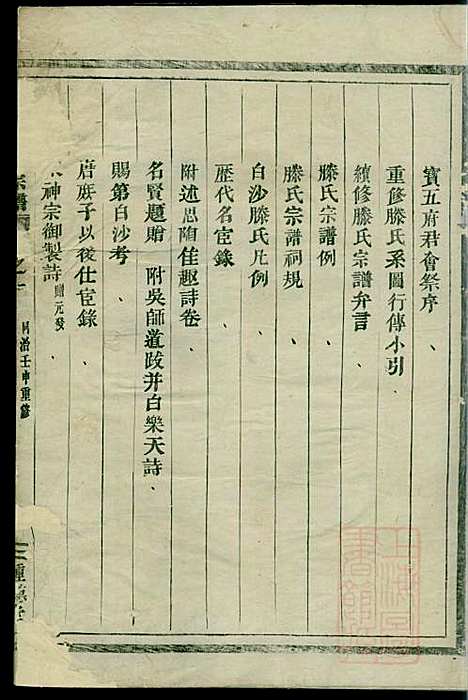 寳五府君會祭序、
重修滕氏系圖行傳小引
續修滕氏宗譜弁言
滕氏宗譜例
滕氏宗譜祠規
白沙滕氏凡例
歷代名宦錄
附述思陶佳趣詩卷
名賢題贈 附吳師道跋并白樂天詩、
賜第白沙考、
唐庶子以後仕宦錄、
神宗御製詩 贈元發、
宗譜 卷之一 同治壬申重修